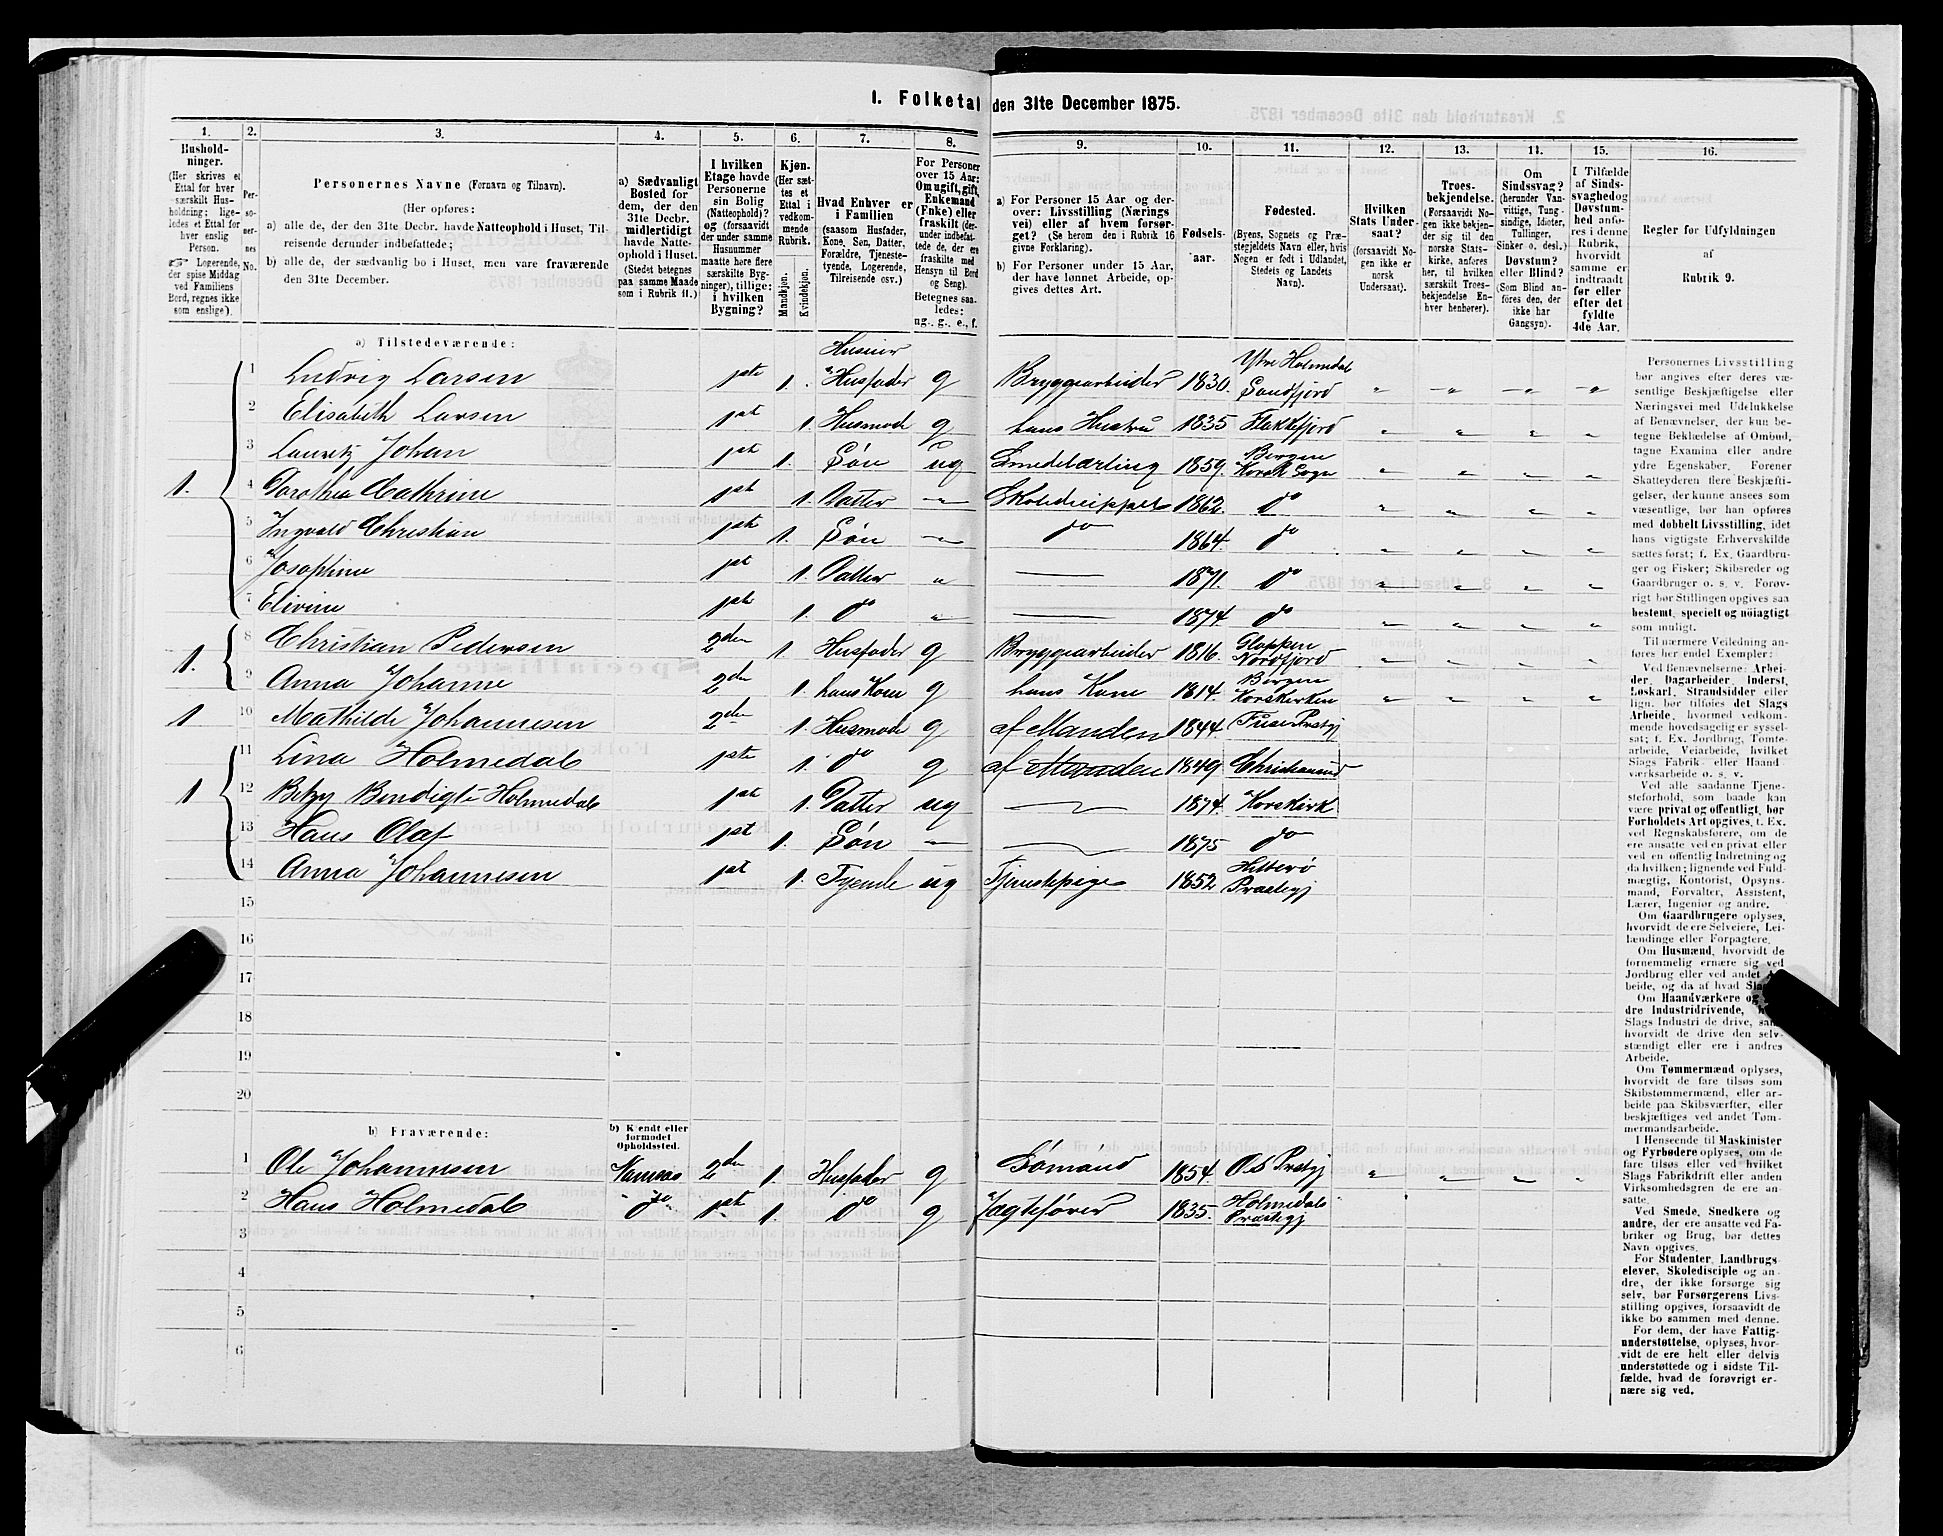 1. Folketal den 31te December 1875.
1.
Hushold-
ninger.
(Her skrives et
Ettal for hver
særskilt Hus-
holdning; lige-
ledes et Ettal for
hver enslig
Person.
☞ Logerende,
der spise Middag
ved Familiens
Bord, regnes ikke
som enslige).
2.
Per-
so-
ner-
nes
No.
3.
Personernes Navne (Fornavn og Tilnavn).
(Her opføres:
a) alle de, der den 31te Decbr. havde Natteophold i Huset, Til-
reisende derunder indbefattede;
b) alle de, der sædvanlig bo i Huset, men vare fraværende
den 31te December.
4.
a) Sædvanligt
Bosted for
dem, der den
31te Decbr.
midlertidigt
havde Natte-
ophold i Huset.
(Stedet betegnes
paa samme Maade
som i Rubrik 11.)
5.
I hvilken
Etage havde
Personerne
sin Bolig
(Natteophold)?
og (forsaavidt
der under samme
Husnummer
maatte høre flere
særskilte Byg-
ninger), tillige:
i hvilken
Bygning?
6.
Kjøn.
(Her sæt-
tes et
Ettal i
vedkom-
mende
Rubrik.
Mandkjøn.
Kvindekjøn.
7.
Hvad Enhver er
i Familien
(saasom Husfader,
Kone, Søn, Datter,
Forældre, Tjeneste-
tyende, Logerende,
Tilreisende osv.)
8.
For Personer
over 15 Aar:
Om ugift, gift,
Enkemand
(Enke) eller
fraskilt (der-
under indbefat-
tede de, der ere
fraskilte med
Hensyn til Bord
og Seng).
Betegnes saa-
ledes:
ug., g., e., f.
9.
a) For Personer 15 Aar og der-
over: Livsstilling (Nærings-
vei) eller af hvem forsør-
get? (Se herom den i Rubrik 16
givne Forklaring).
b) For Personer under 15 Aar,
der have lønnet Arbeide, op-
gives dettes Art.
10.
Fødsels-
aar.
11.
Fødested.
(Byens, Sognets og Præ-
stegjeldets Navn eller, hvis
Nogen er født i Udlandet,
Stedets og Landets
Navn).
12.
Hvilken
Stats Under-
saat?
(forsaavidt No-
gen ikke er
norsk
Undersaat).
13.
Troes-
bekjendelse.
(Forsaavidt No-
gen ikke bekjen-
der sig til den
norske Stats-
kirke, anføres
her, til hvilken
særskilt Troes-
bekjendelse En-
hver henhører).
14.
Om
Sindssvag?
(herunder Van-
vittige, Tung-
sindige, Idioter,
Tullinger,
Sinker o. desl.)
Døvstum?
eller Blind?
(Som Blind an-
føres den, der
ikke har
Gangsyn).
15.
I Tilfælde
af Sinds-
svaghed og
Døvstum-
hed anfø-
res i denne
Rubrik,
hvorvidt
samme er
indtraadt
før eller
efter det
fyldte
4de Aar.
16.
Regler for Udfyldningen
af
Rubrik 9.
a) Tilstedeværende:
1 Ludvig Larsen 1ste 1. Huseier Husfader g Bryggearbeider 1830. Ytre Holmedal Søndfjord
2 Elisabeth Larsen 1ste 1. Husmod g hans Hustru 1835 Flekkefjord
3 Lauritz Johan 1ste 1. Søn ug Smedelærling 1859. Bergen Korsk Sogn
1. 4 Dorothea Cathrine 1ste 1. Datter " Skolediscippel 1862. do
5 Ingvald Christian 1ste 1. Søn " do 1864. do
6 Josephine 1ste 1. Datter " 1871. do
7 Elivine 1ste 1. do " 1874 do
1. 8 Christian Pedersen 2den 1 Husfader g Bryggearbeider 1816. Gloppen Nordfjord
9 Anna Johanne 2den 1. hans Kone g hans Kone 1814. Bergen Korskirken
1 10 Mathilde Johannesen 2den 1. Husmod g af Manden 1844. Fuse Prstgj
11 Lina Holmedal 1ste 1. do g af Manden 1849 Christiansund
1 12 Betzy Bendigte Holmedal 1ste 1. Datter ug 1874. Korskirk
13 Hans Olaf 1ste 1. Søn " 1875 do
14 Anna Johannesen 1ste 1. Tyende ug Tjenestepige 1852 Hitterø Præstegj
15
16
17
18
19
20
b) Fraværende:
b) Kjendt eller
formodet
Opholdssted.
1 Ole Johannesen Namsos 2den 1. Husfader g Sømand 1854. Os Prstgj
2 Hans Holmedal do 1ste 1. do g Jagtefører 1835. Holmedals Præstegj
3
4
5
6
Personernes Livsstilling
bør angives efter deres væ-
sentlige Beskjæftigelse eller
Næringsvei med Udelukkelse
af Benævnelser, der kun be-
tegne Beklædelse af Ombud,
tagne Examina eller andre
ydre Egenskaber. Forener
Skatteyderen flere Beskjæfti-
gelser, der kunne ansees som
væsentlige, bør han opføres
med dobbelt Livsstilling, idet
hans vigtigste Erhvervskilde
sættes først; f. Ex. Gaardbru-
ger og Fisker; Skibsreder og
Gaardbruger o. s. v. Forøv-
rigt bør Stillingen opgives saa
bestemt, specielt og nöiagtigt
som muligt.
Til nærmere Veiledning an-
føres her endel Exempler:
Ved Benævnelserne: Arbei-
der, Dagarbeider, Inderst,
Løskarl, Strandsidder eller
lign. bør tilføies det Slags
Arbeide, hvormed vedkom-
mende hovedsagelig er syssel-
sat; f. Ex. Jordbrug, Tomte-
arbeide, Veiarbeide, hvilket
Slags Fabrik- eller Haand
værksarbeide o. s. v.
Ved alle saadanne Tjene-
steforhold, som baade kan
være privat og offentligt, bør
Forholdets Art opgives, f. Ex.
ved Regnskabsførere, om de
ere ansatte ved en privat eller
ved en offentlig Indretning og
da hvilken; lignende ved Fuld-
mægtig, Kontorist, Opsyns-
mand, Forvalter, Assistent,
Lærer, Ingeniør og andre.
Om Gaardbrugere oplyses,
hvorvidt de ere Selveiere, Lei-
lændinge eller Forpagtere.
Om Husmænd, hvorvidt de
fornemmelig ernære sig ved
Jordbrug eller ved andet Ar-
beide, og da af hvad Slags.
Om Haandværkere og
dre Industridrivende,
Slags Industri de drive, samt
hvorvidt de drive den selv-
stændigt eller ere i andres
Arbeide.
Om Tømmermænd oplyses,
hvorvidt de fare tilsøs som
Skibstømmermænd, eller ar-
beide paa Skibsværfter, eller
beskjæftiges ved andet Tøm-
mermandsarbeide.
I Henseende til Maskinister
og Fyrbødere oplyses, om de
fare tilsøs eller ved hvilket
Slags Fabrikdrift eller anden
Virksomhedsgren de ere an-
satte.
Ved Smede, Snedkere og
andre, der ere ansatte ved Fa-
briker og Brug, bør dettes
Navn opgives.
For Studenter, Landbrugs-
elever, Skoledisciple og an-
dre, der ikke forsørge sig
selv, bør Forsørgerens Livs-
stilling opgives, forsaavidt de
ikke bo sammen med denne.
For dem, der have Fattig-
understøttelse, oplyses, hvor-
vidt de ere helt eller delvis
understøttede og i sidste Til-
fælde, hvad de forøvrigt er-
nære sig ved.